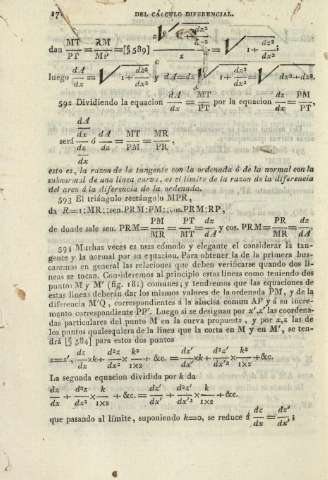 DEL CÁLCULO DIFERENCIAL.
dan MT/PT = RM/MP = [§ 589] = √(1 + dz²/dx²);
luego dA/dx = √(1 + dz²/dx²) y dA = dx √(1 + dz²/dx²) = √(dx² + dz².
592 Dividiendo la equacion dA/dx = MT/PT por la equacion dz/dx = PM/PT,
será (dA/dx)/(dz/dx) ó dA/dz = MT/PM = MR/PR,
esto es, la razon de la tangente con la ordenada ó de la normal con la
subnormal de una linea curva, es el límite de la razon de la diferencia
del arco á la diferencia de la ordenada.
593 El triángulo rectángulo MPR,
da R=1:MR::sen.PRM:PM::cos.PRM:RP,
de donde sale sen. PRM = PM/MR = PT/MT = dz/dA y cos. PRM = PR/MR = dx/dA
594 Muchas veces es mas cómodo y elegante el considerar la tan-
gente y la normal por su equacion. Para obtener la de la primera bus-
caremos en general las relaciones que deben verificarse quando dos li-
neas se tocan. Consideremos al principio estas lineas como teniendo dos
puntos M y M' (fig. 181) comunes; y tendremos que las equaciones de
estas lineas deberán dar los mismos valores de la ordenada PM, y de la
diferencia M'Q, correspondientes á la abscisa comun AP y á su incre-
mento correspondiente PP'. Luego si se designan por x',z' las coordena-
das particulares del punto M en la curva propuesta, y por x,z las de
los puntos qualesquiera de la linea que la corta en M y en M', se ten-
drá [§ 584] para estos dos puntos
z=z', dz/dx × k + d²z/dx² × k²/1×2 + &c. = dz'/dx' × k + d²z'/dx'² × k²/1×2 + &c.
La segunda equacion dividida por k da
dz/dx + d²z/dx² × k/1×2 + &c. = dz'/dx' + d²z'/dx'² × k/1×2 + &c.
que pasando al límite, suponiendo k=0, se reduce á dz/dx = dz'/dx';